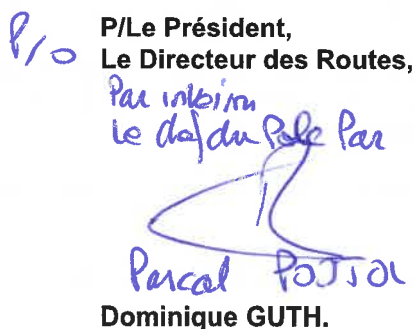 P/o P/Le Président,
Le Directeur des Routes,
Par intérim
Le chef du Pole Par
Pascal
Dominique GUTH.